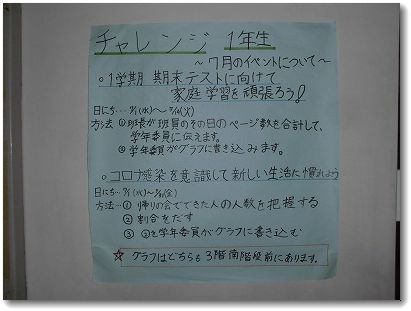 チャレンジ 1年生
～7月のイベントについて～
○1学期 期末テストに向けて
家庭学習を頑張ろう!
日にち… 7/1(水)～
方法 ①班長が班員のその日のページ数を合計して、
学年委員に伝えます。
②学年委員がグラフに書き込みます。
○コロナ感染を意識して新しい生活に慣れよう
日にち～ 7/1(水)～
方法…①帰りの会でできた人の人数を把握する
②割合をだす
③②を学年委員がグラフに書き込む
☆グラフはどちらも3階南階段前にあります。